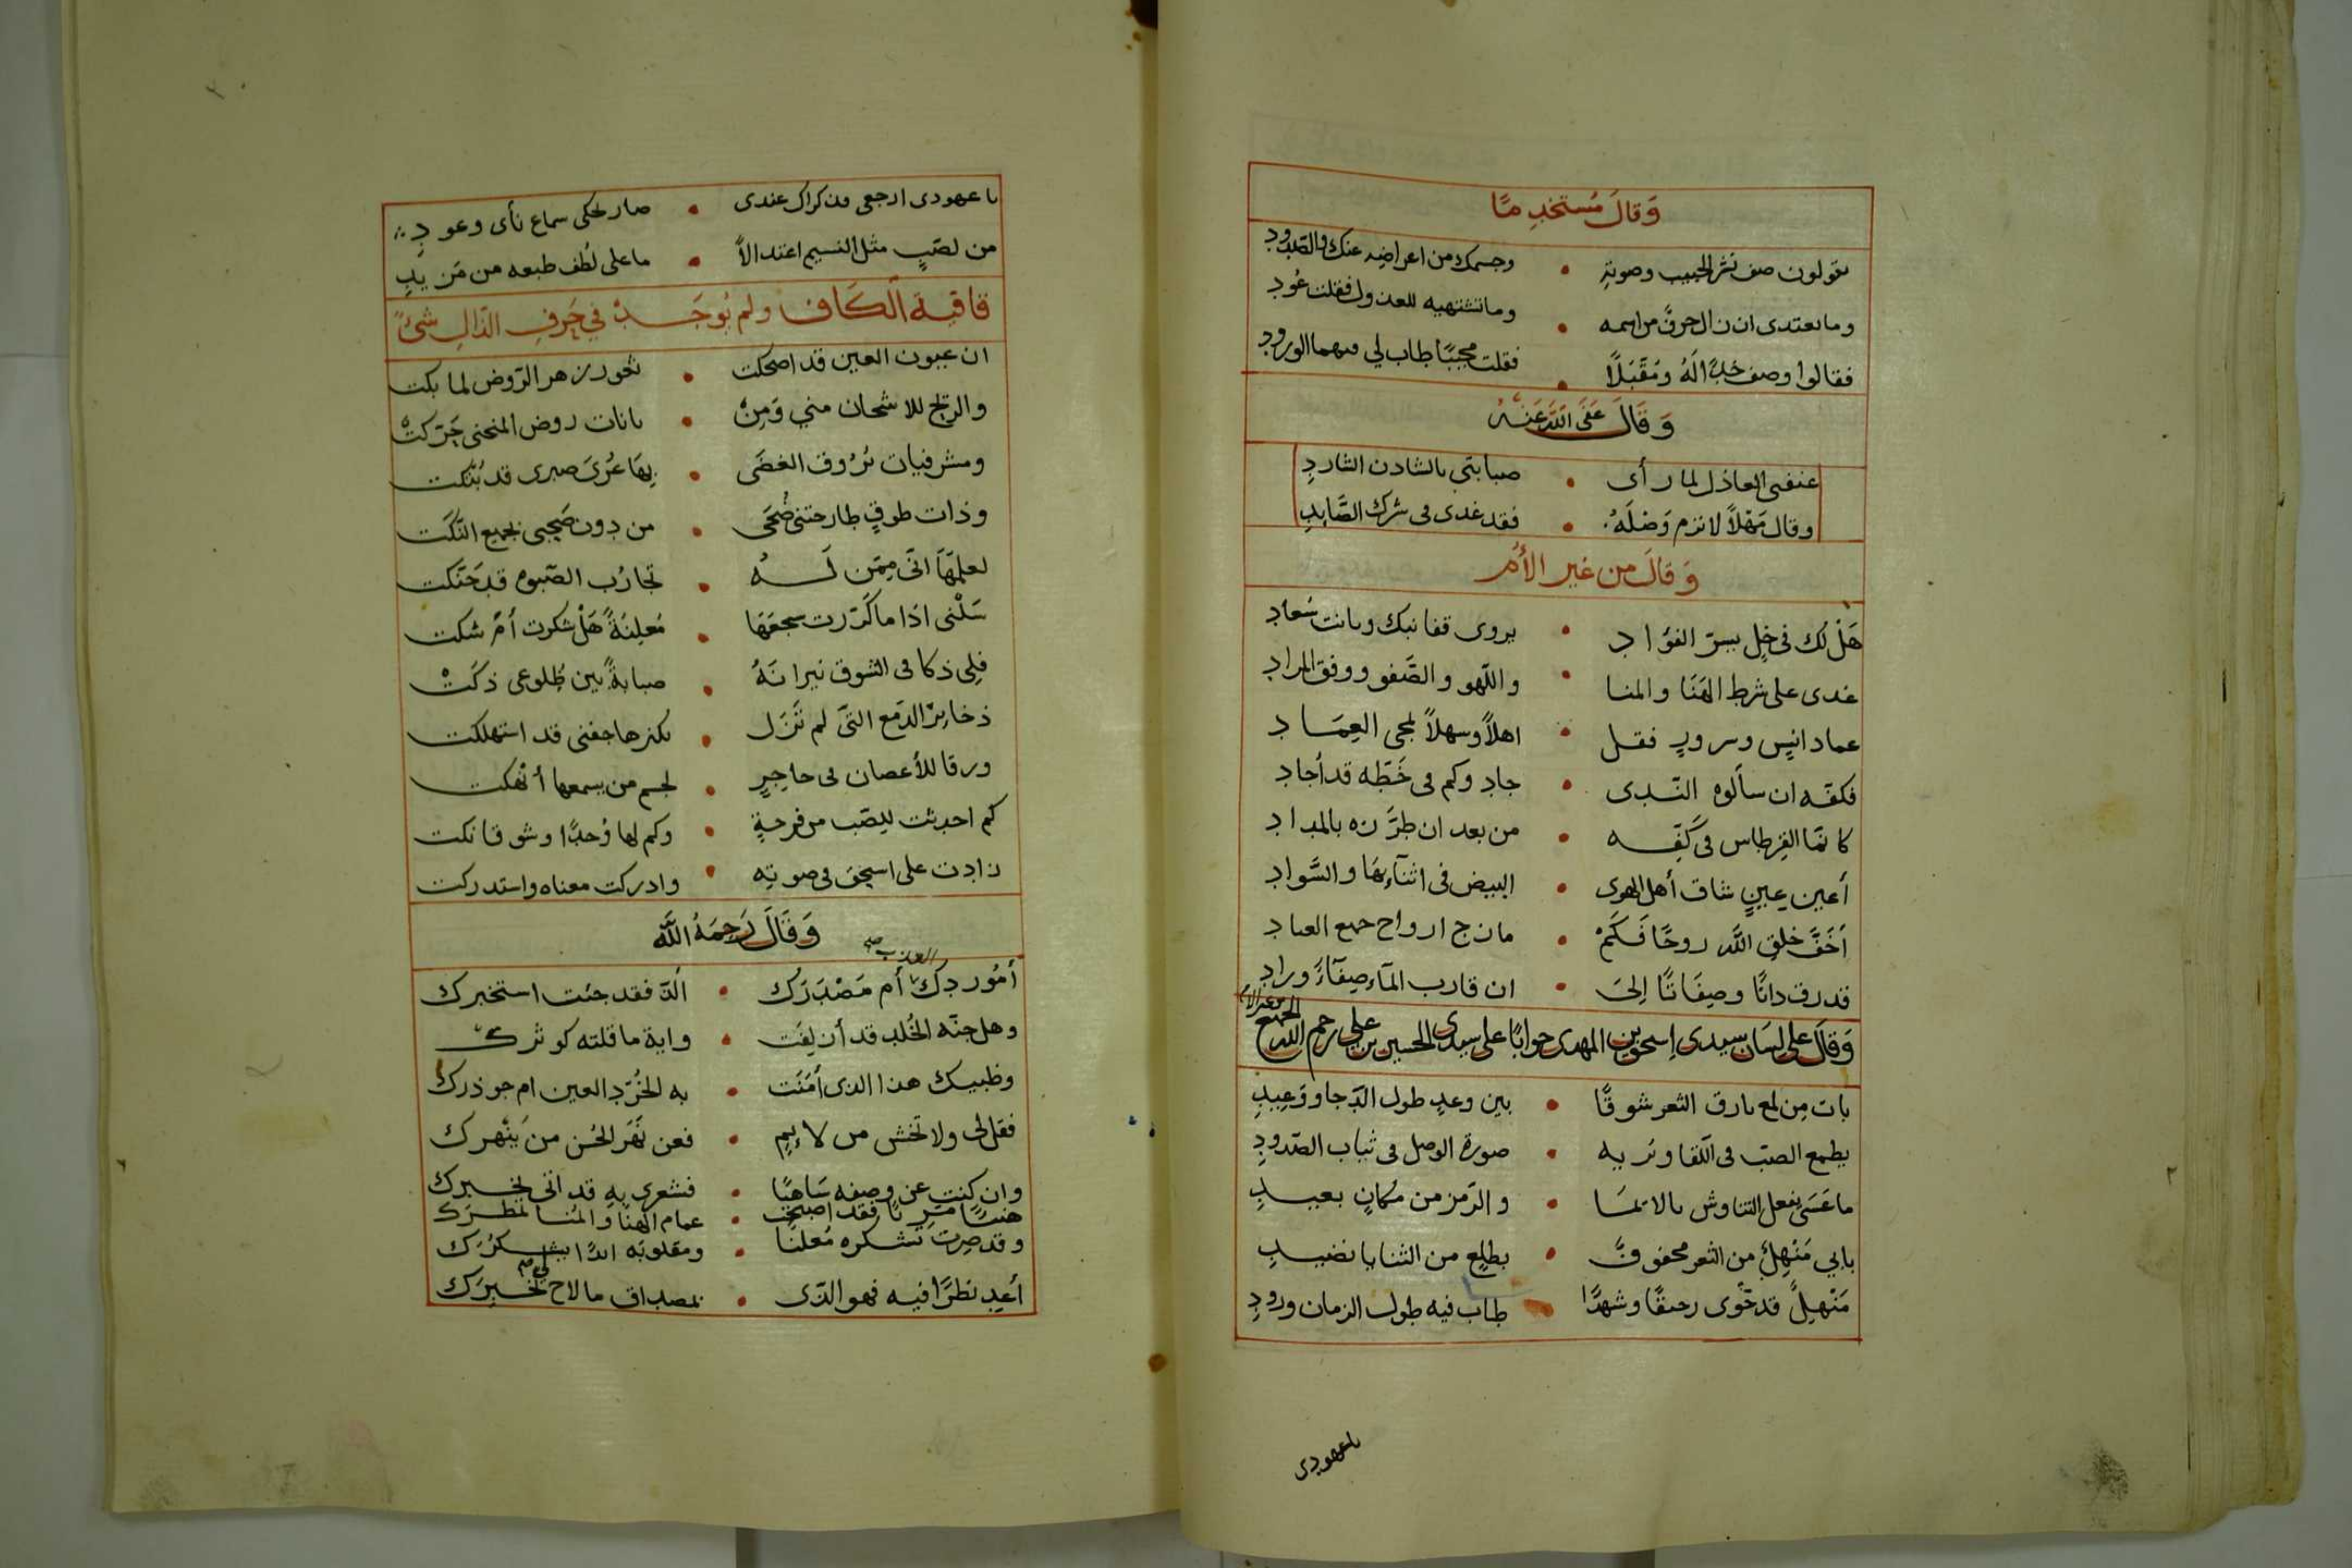 وَقالَ مُستخدِمًا
يقولون صف نشر الحبيب وصوته • وجسمك من اعراضه عنك والصّدود
وما يعتدى ان زال حرفٌ من اسمه • وما تشتهيه للعذول فقلت عُود
فقالوا وصف خدًّا لَهُ ومُقَبَّلاً • فقلت مجيبًا طاب لي منهما الورود
وَقَالَ عَفَى اللَّه عَنهُ
عنفنى العاذل لما رأى • صبابتي بالشادن الشارد
وقال مَهْلاً لا ترم وَصْلَهُ • فقد غدى فى شرك الصَّايد
وَقالَ من غير الأُمّ
هَلْ لك فى خِل يسرّ الفؤاد • يروى قفا نبك وبانت سُعاد
غدى على شرط الهَنَا والمنا • واللّهو والصَّفو ووفق المراد
عماد انيس وسرور فقل • اهلاً وسهلاً بمجى العِمَاد
فكفّه ان سألوه النّدى • جاد وكم فى خَطّه قد أجاد
كانمّا القرطاس فى كَفِّه • من بعد ان طرَّزه بالمداد
أعين عِينٍ شاق أهل الهوى • البيض فى اثنآءِهَا والسَّواد
أخَفَّ خلق اللَّه روحًا فَكَمْ • مازج ارواح جميع العباد
قد رق ذاتًا وصِفَاتًا إلى • ان قارب المآء صِفآءً وزاد
وَقَالَ على لسَان سيدى إسحق بن المهدى جوابًا على سيدى الحسين بن على رحم اللّه الجميع
بات مِن لمع بارق الثغر شوقًا • بين وعدٍ طول الدّجا ووَعِيدِ
يطمع الصبّ فى اللّقا وتريه • صورة الوصل فى ثياب الصّدودِ
ما عَسَى يفعل التناوش بالا • والرّمز من مكانٍ بعيدِ
بابي مَنْهلٌ من الثغر محفوفٌ • بطلعٍ من الثنايا نضيدِ
مَنْهلٌ قد حَوى رحيقًا وشهدًا • طاب فيه طول الزمان ورودِ
ياعهودى
ياعهودى ارجعى فذكراك عندى • صار يحكى سماع نأى وعودِ
من لصَبٍ مثل النسيم اعتدالاً • ما على لُطف طبعه من مَزيدِ
قافية الكاف ولم يُوجَدْ في حَرفِ الذّال شىءٌ
ان عيون العين قد اضحكت • ثغور زهر الرّوض لما بكت
والريح للاشجان مني وَمِنْ • بانات روض المنحنى حَرّكتْ
ومشرفيات بُرُوق الغضَى • بِهَا عُرَى صبرى قد بُتّكت
وذات طوقٍ طارحتنى ضُحَى • من دون صَحبى بجميع النّكَت
لعلمِهَا انّى مِمَن لَهُ • تجارُب الصّبوه قد حَنّكت
سَلْنى اذَا ما كَرّرت سجعَهَا • مُعلِنَةً هَلْ شكرت أمْ شكت
فلى ذكا فى الشوق نيرانَهُ • صبابةً بين ضُلوعى ذكَتْ
ذخايرُ الدّمع التى لم تَزَل • بكنزها جفنى قد استهلكت
ورقا للأغصان فى حاجِرٍ • لجسم من يسمعها أنهكت
كم احدثت للصّب من فرحةٍ • وكم لها وَجدًا وشوقا نكت
زادت على اسحق فى صوتِه • وادركت معناه واستدركت
وَقَالَ رَحِمَهُ اللَّه
أمُوردك العذب أم مَصْدَرَك • الذّ فقد جئت استخبرك
وهل جنّه الخُلد قد أُزلِفَت • واية ما قلته كوثرك
وظبيك هذا الذى أمنَت • به الخُرّد العين ام جوذرك
فقل لى ولا تخش من لائِمٍ • فعن نَهَر الحُسن من يَنْهرك
وان كنت عن وصفه سَاهيًا • فشعرى به قد اتى يخبرك
هنيئًا مريئًا فقد اصبحت • غمام الهنا والمُنا تمطرك
وقد صرت تشكره مُعلنًا • ومقلوبُه ابدًا يشكرُك
أعِد نظرًا فيه فهو الذى • بمصداق ما لاح لى يخبرَك